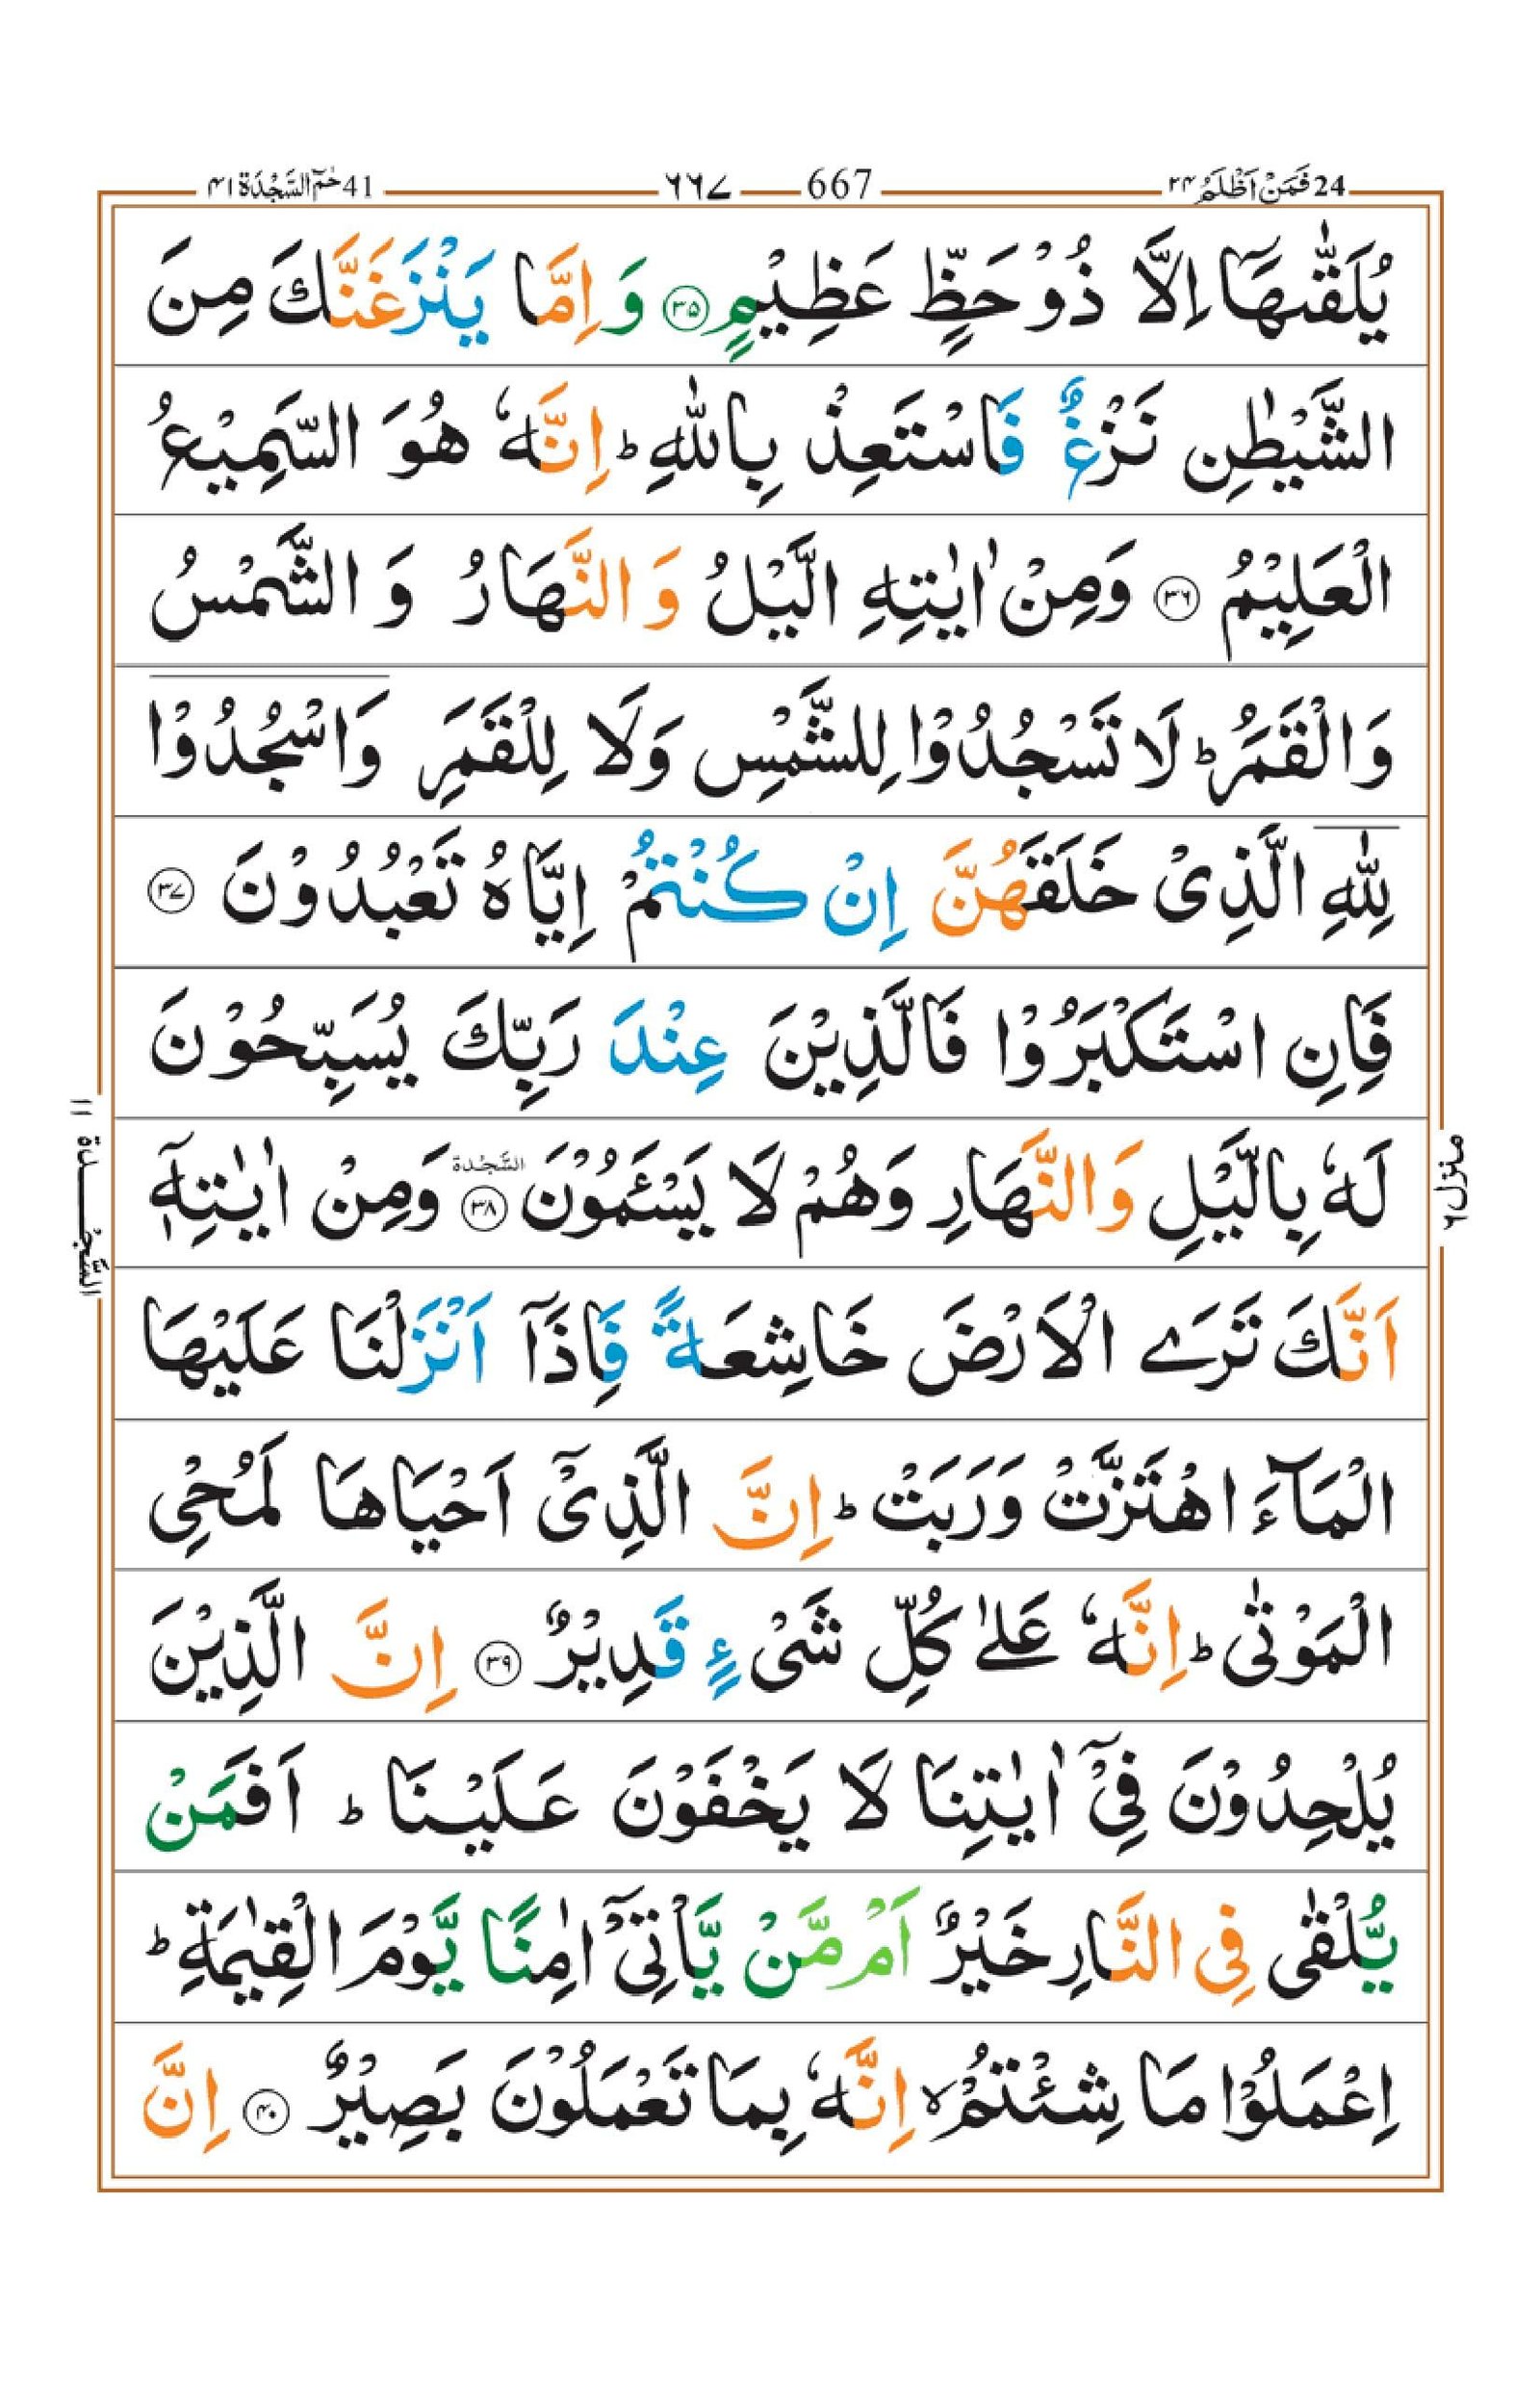 24 فَمَنْ اَظْلَمُ ۲۴ 667 ٦٦٧ 41 حٰمٓ السَّجْدَة ۴۱
يُلَقّٰىهَاۤ اِلَّا ذُوْ حَظٍّ عَظِيْمٍ ۳۵ وَ اِمَّا يَنْزَغَنَّكَ مِنَ
الشَّيْطٰنِ نَزْغٌ فَاسْتَعِذْ بِاللّٰهِ ؕ اِنَّهٗ هُوَ السَّمِيْعُ
الْعَلِيْمُ ۳۶ وَمِنْ اٰيٰتِهِ الَّيْلُ وَ النَّهَارُ وَ الشَّمْسُ
وَالْقَمَرُ ؕ لَا تَسْجُدُوْا لِلشَّمْسِ وَلَا لِلْقَمَرِ وَاسْجُدُوْا
لِلّٰهِ الَّذِىْ خَلَقَهُنَّ اِنْ كُنْتُمْ اِيَّاهُ تَعْبُدُوْنَ ۳۷
فَاِنِ اسْتَكْبَرُوْا فَالَّذِيْنَ عِنْدَ رَبِّكَ يُسَبِّحُوْنَ
لَهٗ بِالَّيْلِ وَالنَّهَارِ وَهُمْ لَا يَسْـَٔمُوْنَ ۳۸ السَّجْدَة وَمِنْ اٰيٰتِهٖۤ
اَنَّكَ تَرَى الْاَرْضَ خَاشِعَةً فَاِذَاۤ اَنْزَلْنَا عَلَيْهَا
الْمَآءَ اهْتَزَّتْ وَرَبَتْ ؕ اِنَّ الَّذِىْۤ اَحْيَاهَا لَمُحْىِ
الْمَوْتٰى ؕ اِنَّهٗ عَلٰى كُلِّ شَىْءٍ قَدِيْرٌ ۳۹ اِنَّ الَّذِيْنَ
يُلْحِدُوْنَ فِىْۤ اٰيٰتِنَا لَا يَخْفَوْنَ عَلَيْنَا ؕ اَفَمَنْ
يُّلْقٰى فِى النَّارِ خَيْرٌ اَمْ مَّنْ يَّاْتِىْۤ اٰمِنًا يَّوْمَ الْقِيٰمَةِ ؕ
اِعْمَلُوْا مَا شِئْتُمْ ۙ اِنَّهٗ بِمَا تَعْمَلُوْنَ بَصِيْرٌ ۴۰ اِنَّ
منزل ٦
السَّجْدَة ۱۱